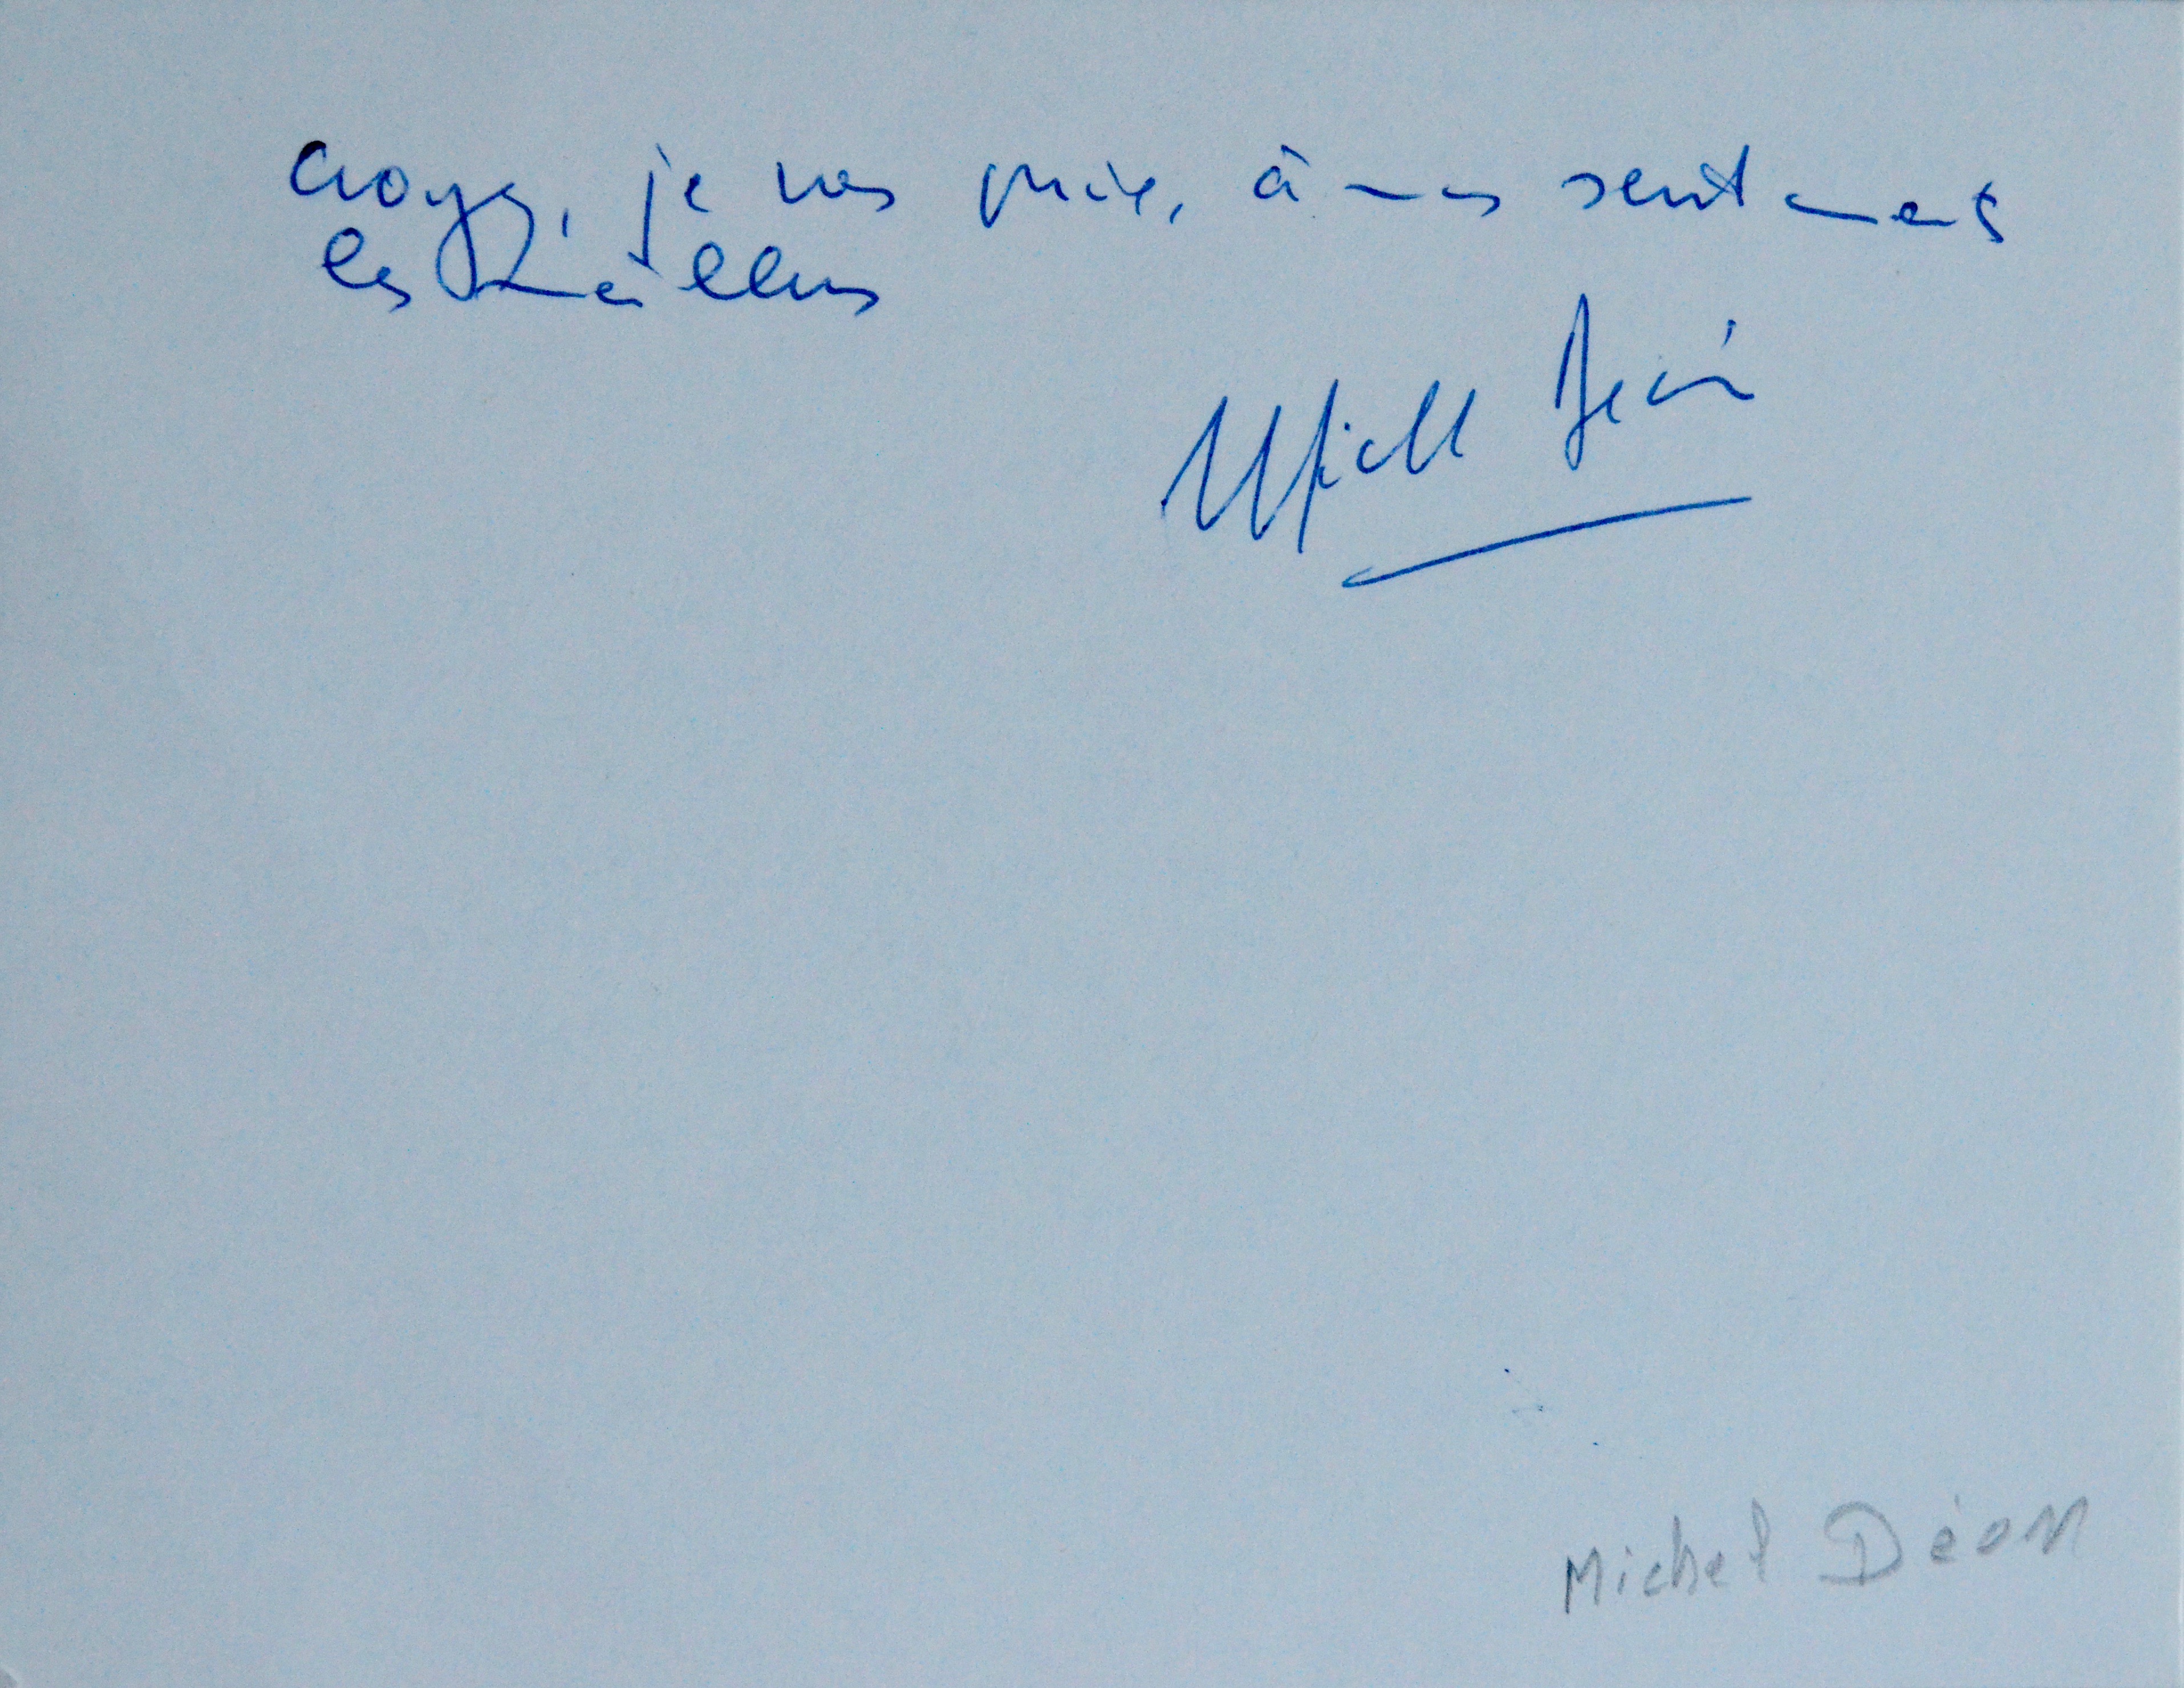 Croyez, je vous prie, à mes sentiments
les meilleurs
Michel Déon
Michel Déon